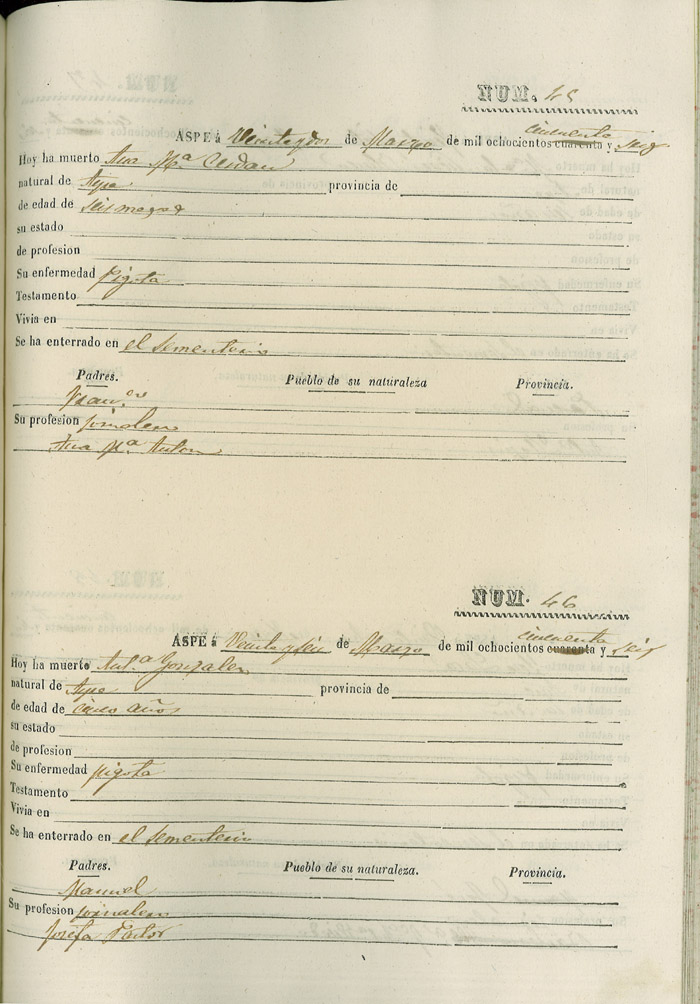 NUM. 45
ASPE á Veinte y dos de Marzo de mil ochocientos cuarenta cincuenta y seis
Hoy ha muerto Ana Mª Cerdan
natural de Aspe provincia de
de edad de seis meses
su estado
de profesion
Su enfermedad Pigota
Testamento
Vivia en
Se ha enterrado en el sementerio
Padres. Pueblo de su naturaleza Provincia.
Franco
Su profesion jornalero
Ana Mª Anton
NUM. 46
ASPE á Veinte y seis de Marzo de mil ochocientos cuarenta cincuenta y seis
Hoy ha muerto Antª Gonzalez
natural de Aspe provincia de
de edad de cinco años
su estado
de profesion
Su enfermedad pigota
Testamento
Vivia en
Se ha enterrado en el sementerio
Padres. Pueblo de su naturaleza. Provincia.
Manuel
Su profesion jornalero
Josefa Pastor